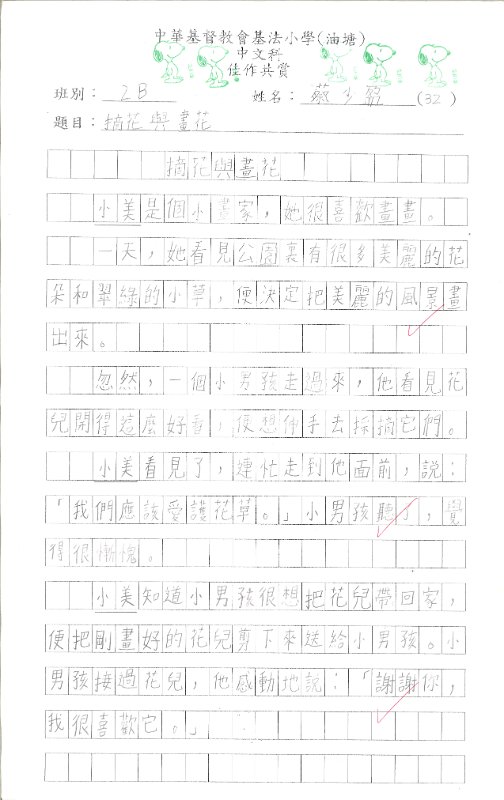 中華基督教會基法小學(油塘)
中文科
佳作共賞
班別： 2B 姓名： 蔡少 (32)
題目： 摘花與畫花
摘花與畫花
小美是個小畫家，她很喜歡畫畫。
一天，她看見公園裏有很多美麗的花
朵和翠綠的小草，便決定把美麗的風景畫
出來。
忽然，一個小男孩走過來，他看見花
兒開得這麼好看，便想伸手去採摘它們。
小美看見了，連忙走到他面前，說：
「我們應該愛護花草。」小男孩聽了，覺
得很慚愧。
小美知道小男孩很想把花兒帶回家，
便把剛畫好的花兒剪下來送給小男孩。小
男孩接過花兒，他感動地說：「謝謝你，
我很喜歡它。」